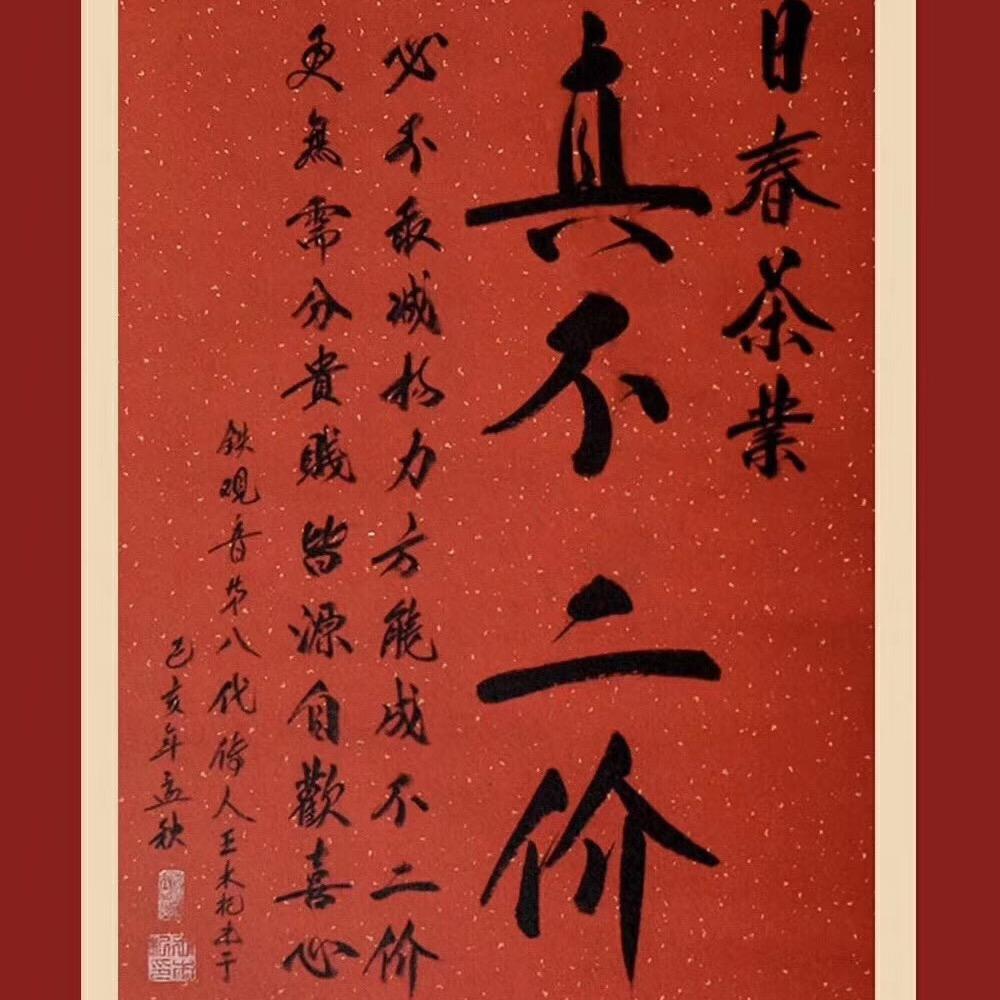 日春茶業
真不二价
必不敢减物力方能成不二价
更無需分貴賤皆源自歡喜心
鉄观音第八代传人王
己亥年孟秋